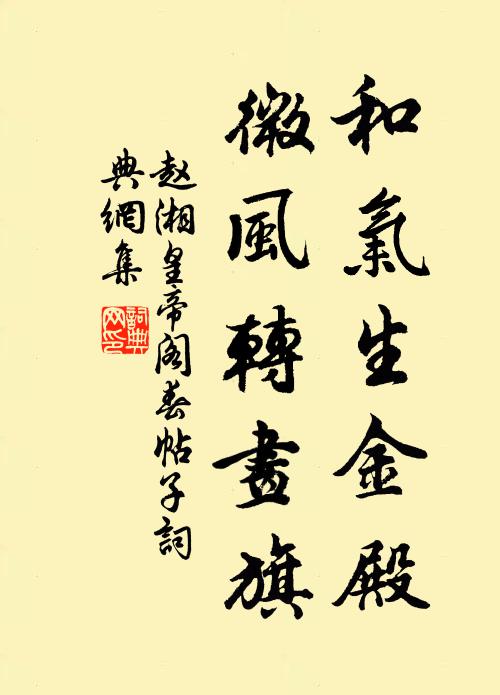 和氣生金殿
微風轉畫旗
赵湘皇帝阁春帖子詞
典網集
詞典
网印